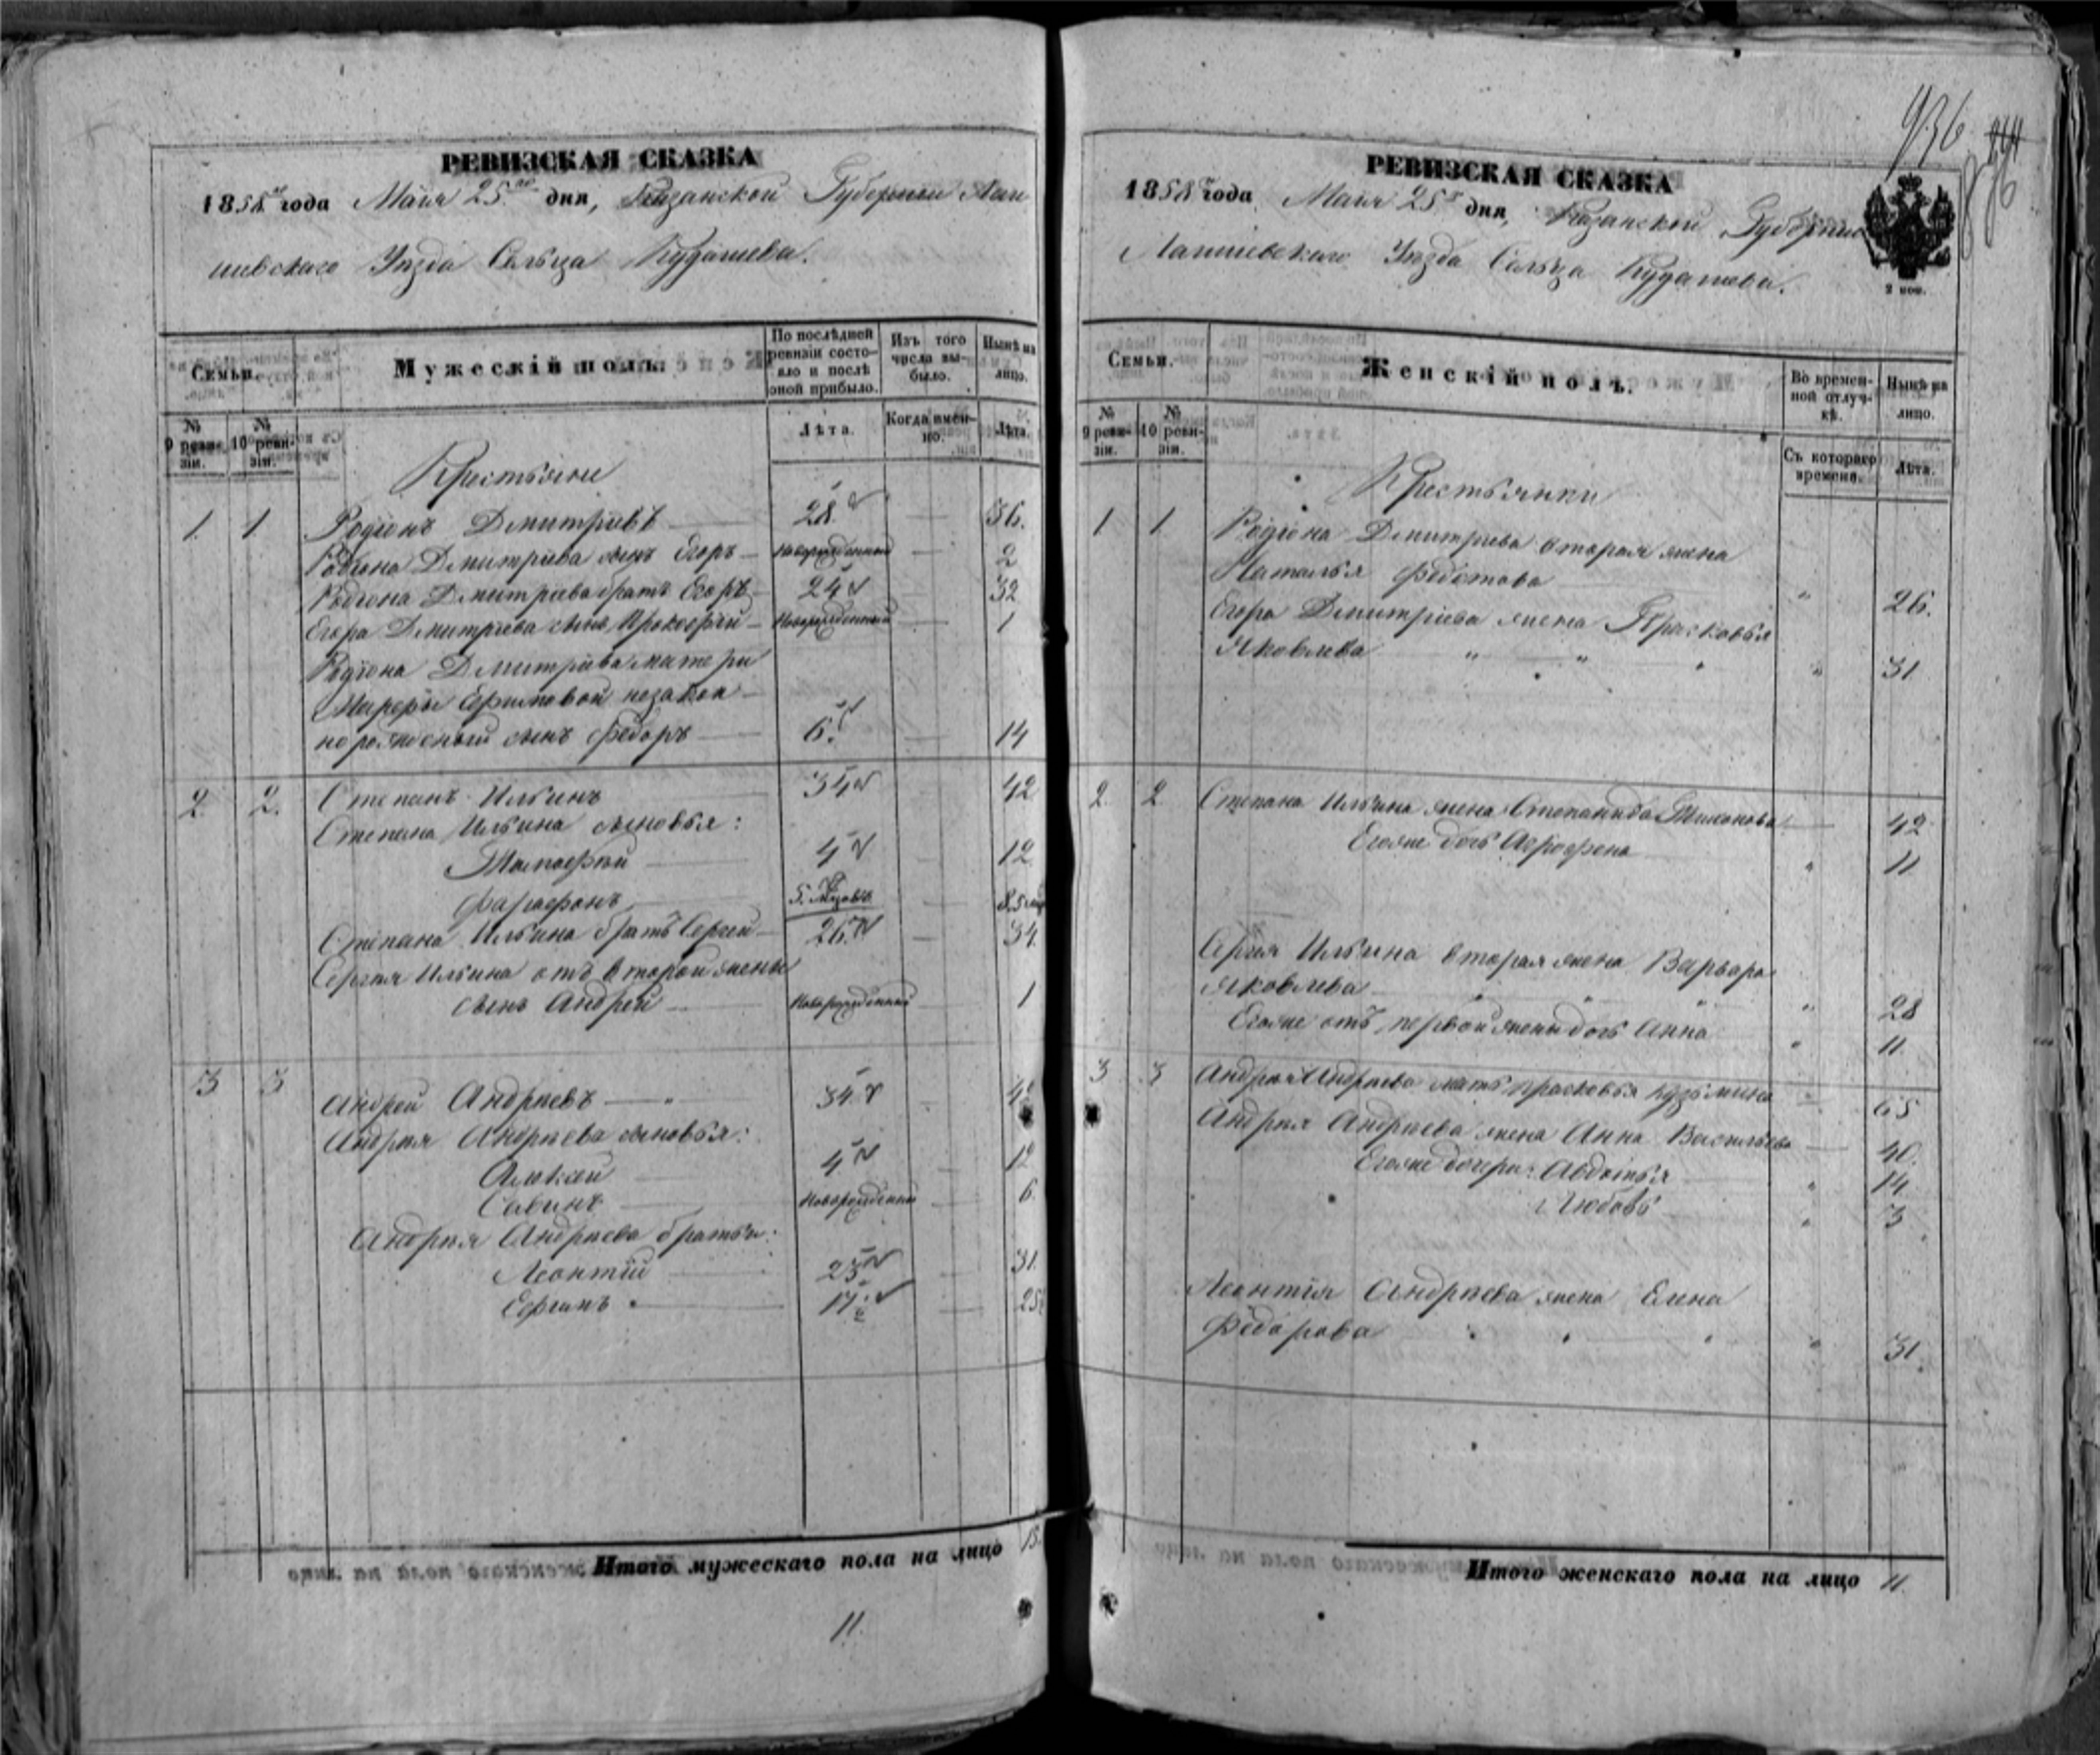 РЕВИЗСКАЯ СКАЗКА
1858 года Маія 25го дня, Казанской Губерніи Лаи
шевскаго Уѣзда Сельца Кудашева.
Семьи.
Мужескій полъ.
По послѣдней ревизіи состояло и послѣ оной прибыло.
Изъ того числа выбыло.
Нынѣ на лицо.
№ 9 ревизіи.
№ 10 ревизіи.
Лѣта.
Когда именно.
Лѣта.
Крестьяне
1. 1 Родіонъ Дмитріевъ 28 36.
Родіона Дмитріева сынъ Егоръ новорожденный 2
Родіона Дмитріева братъ Егоръ 24 32
Егора Дмитріева сынъ Прокофій новорожденный 1
Родіона Дмитріева матери
Марфы Ефимовой незакон
норожденный сынъ Федоръ 6 14
2. 2. Степанъ Ильинъ 34 42
Степана Ильина сыновья:
Тимофей 4 12
Фарафонъ 5. мѣсяцовъ 8. 5 мѣс
Степана Ильина братъ Сергей 26 34.
Сергѣя Ильина отъ второй жены
сынъ Андрей новорожденный 1
3 3 Андрей Андреевъ 34 42
Андрея Андреева сыновья:
Алексей 4 12
Савинъ новорожденный 6.
Андрея Андреева братья:
Леонтій 23 31.
Ефимъ 17 25
Итого мужескаго пола на лицо 15.
11.
936
РЕВИЗСКАЯ СКАЗКА
1858 года Маія 25го дня, Казанской Губерніи
Лаишевскаго Уѣзда Сельца Кудашева.
2 коп.
Семьи.
Женскій полъ.
Во временной отлучкѣ.
Нынѣ на лицо.
№ 9 ревизіи.
№ 10 ревизіи.
Съ котораго времени.
Лѣта.
Крестьянки
1 1 Родіона Дмитріева вторая жена
Наталья Федотова " 26.
Егора Дмитріева жена Прасковья
Яковлева " " " 31
2. 2. Степана Ильина жена Степанида 42
Егоже дочь Агрофена " 11
Сергѣя Ильина вторая жена Варвара
Яковлева " 28
Егоже отъ первой жены дочь Анна " 11.
3 3 Андрея Андреева мать Прасковья Кузьмина " 65
Андрея Андреева жена Анна Васильева 40.
Егоже дочери: Авдотья " 14.
Любовь " 3
Леонтія Андреева жена Елена
Федорова " " " 31.
Итого женскаго пола на лицо 11.